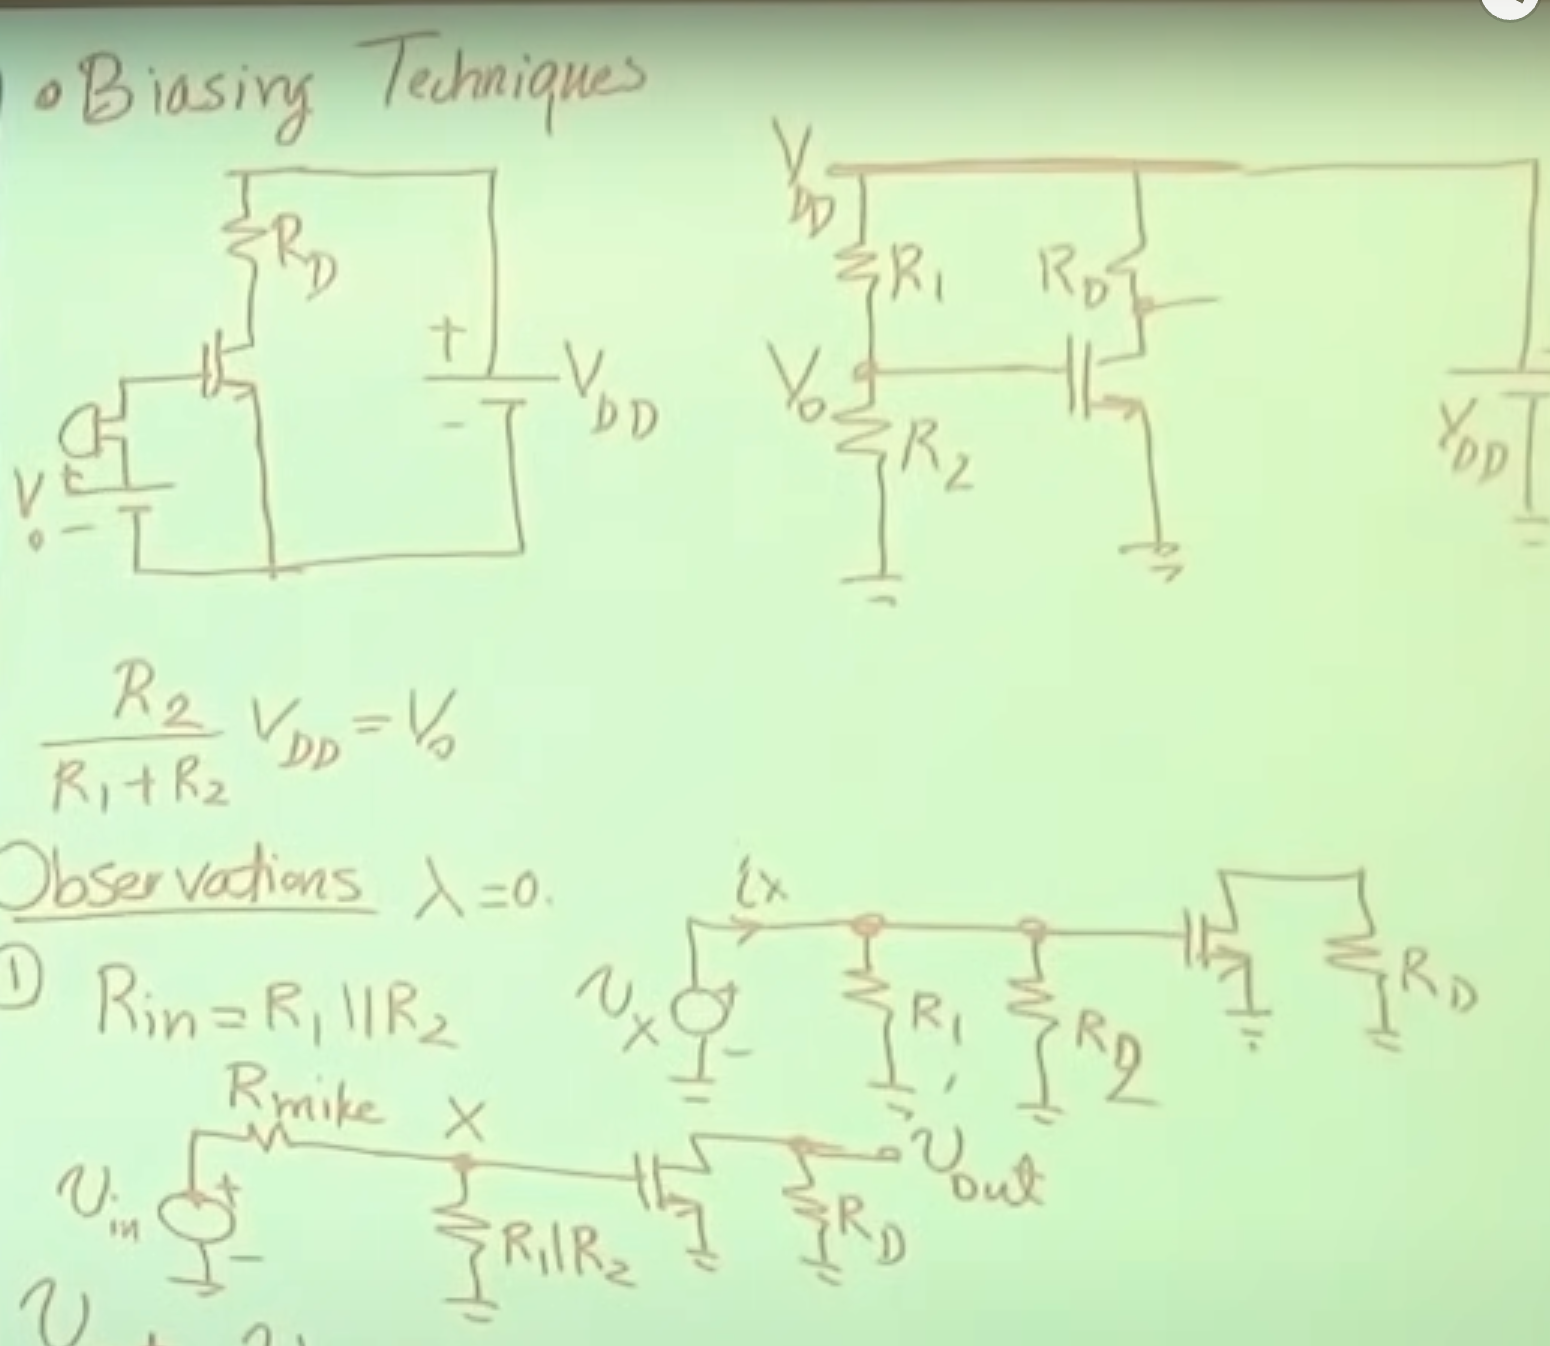 • Biasing Techniques
R_D
+
-
V_DD
V_0
+
-
V_DD
R_1
R_D
V_0
R_2
V_DD
R_2 / (R_1 + R_2) V_DD = V_0
Observations λ = 0.
i_x
① R_in = R_1 || R_2
v_x
-
R_1
R_2
R_D
R_mike
X
v_in
+
-
R_1 || R_2
R_D
v_out